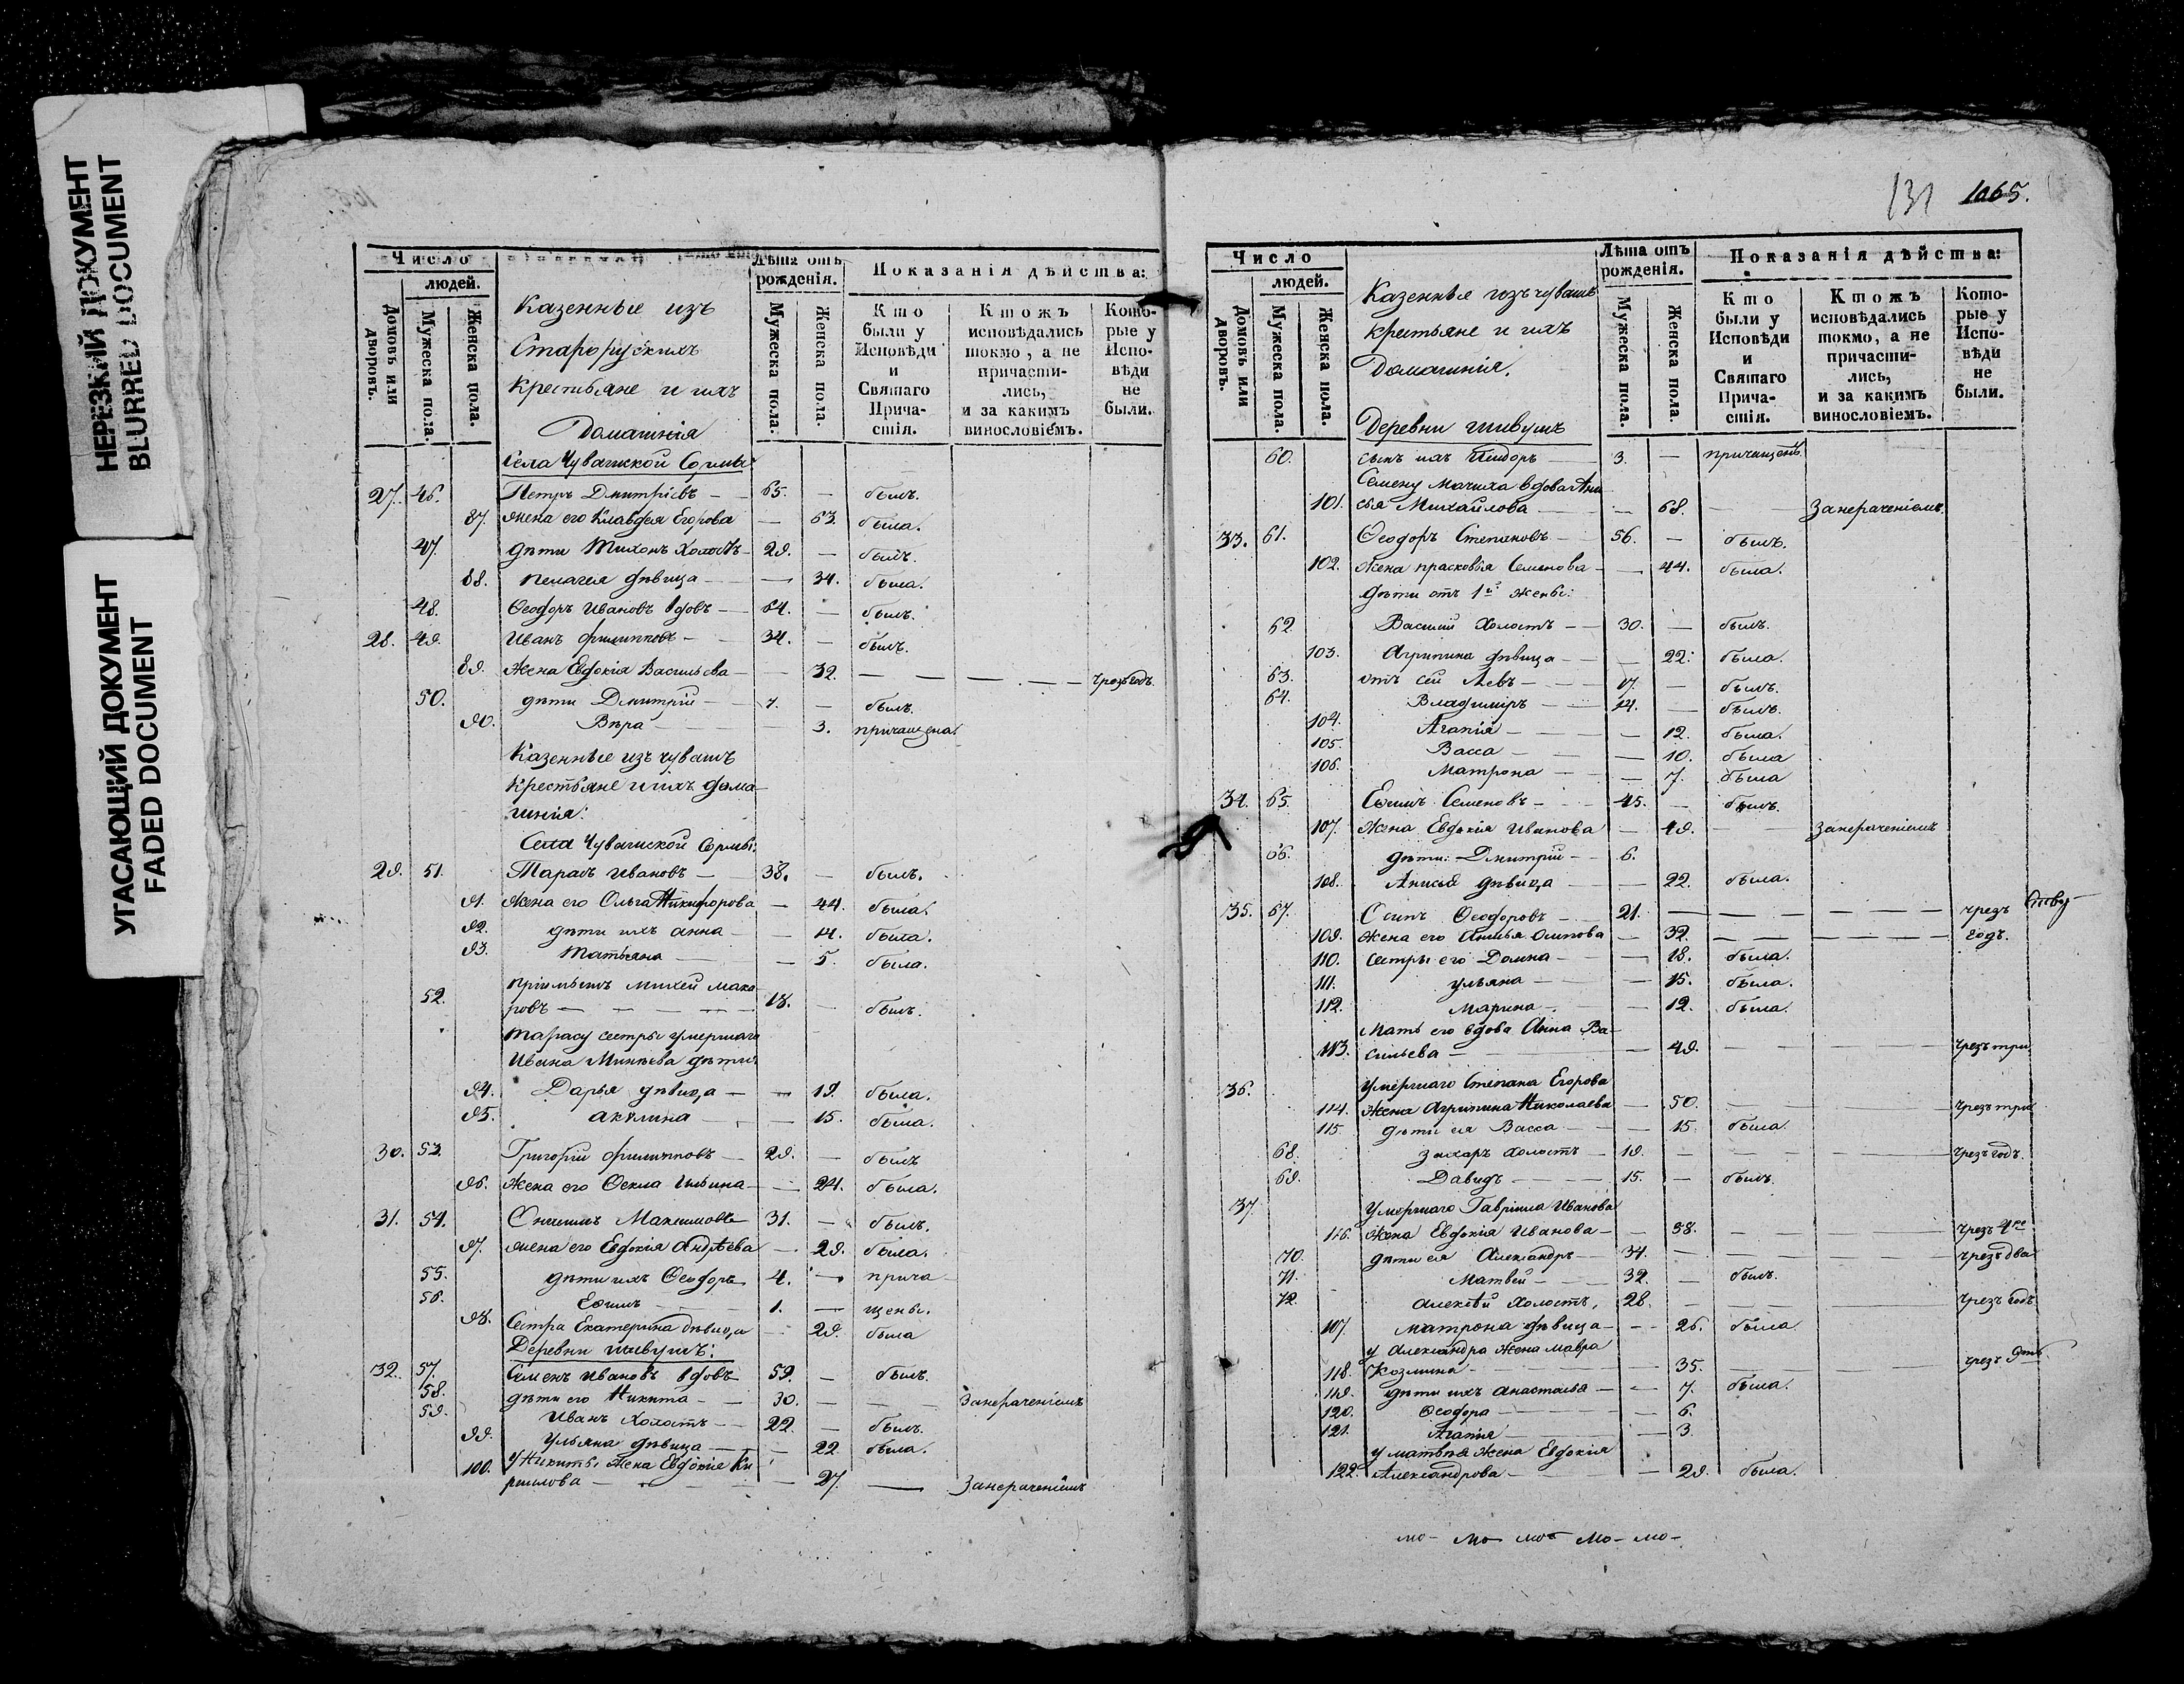 НЕРЕЗКИЙ ДОКУМЕНТ
BLURRED DOCUMENT
УГАСАЮЩИЙ ДОКУМЕНТ
FADED DOCUMENT
Число
людей.
Домовъ или дворовъ.
Мужеска пола.
Женска пола.
Казенные изъ
Старорускихъ
Крестьяне и ихъ
Домашнія
Лѣта отъ рожденія.
Мужеска пола.
Женска пола.
Показанія дѣйства:
Кто были у Исповѣди и Святаго Прича-стія.
Ктожъ исповѣдались токмо, а не причасти-лись, и за какимъ винословіемъ.
Кото-рые у Испо-вѣди не были.
Села Чувашской Сормы
27. 46. Петръ Дмитріевъ — 65. — былъ.
87. жена его Клавдея Егорова — 63. была.
47. дѣти Тихонъ холостъ — 29. — былъ.
88. Пелагея дѣвица — — 34. была.
48. Ѳеодоръ Ивановъ вдовъ — 64. — былъ.
28. 49. Иванъ Филипповъ — 34. — былъ.
89. Жена Евдокія Васильева — — 32. — — — — чрезъ годъ.
50. дѣти Дмитрій — 7. — былъ.
90. Вѣра — — 3. причащена.
Казенные изъ чувашъ
Крестьяне и ихъ дома-
шнія:
Села Чувашской Сормы:
29. 51. Тарасъ Ивановъ — 38. — былъ.
91. Жена его Ольга Никифорова — 44. была.
92. дѣти ихъ Анна — — 14. была.
93. Татьяна — — 5. была.
пріимышъ Михей Мака-
52. ровъ — — — 18. — былъ.
Тарасу сестры умершаго
Ивана Минѣева дѣти:
94. Дарья дѣвица — — 19. была.
95. Акулина — — 15. была.
30. 53. Григорій Филипповъ — 29. — былъ
96. Жена его Ѳекла Ильина — — 24. была.
31. 54. Онисимъ Максимовъ 31. — былъ.
97. жена его Евдокія Андрѣева — 29. была.
55. дѣти ихъ Ѳеодоръ 4. — прича-
56. Ефимъ 1. — щены.
98. Сестра Екатерина дѣвица — 29. была
Деревни Шивушъ:
32. 57. Семенъ Ивановъ вдовъ 59. — былъ.
58. дѣти его Никита — 30. — — — Занераченіемъ
59. Иванъ Холостъ — 22. — былъ.
99. Ульяна дѣвица — — 22 была.
100. У Никиты Жена Евдокія Ки
рилова — — — 27. — Занераченіемъ
131 1065.
Число
людей.
Домовъ или дворовъ.
Мужеска пола.
Женска пола.
Казенные изъ чувашъ
крестьяне и ихъ
Домашнія.
Деревни Шивушъ
Лѣта отъ рожденія.
Мужеска пола.
Женска пола.
Показанія дѣйства:
Кто были у Исповѣди и Святаго Прича-стія.
Ктожъ исповѣдались токмо, а не причасти-лись, и за какимъ винословіемъ.
Кото-рые у Испо-вѣди не были.
60. сынъ ихъ — 3. — причащенъ.
Семену Мачиха вдова Ани
101. сья Михайлова — — 68. — Занераченіемъ.
33. 61. Ѳеодоръ Степановъ — 56. — былъ.
102. Жена Прасковія Семенова — — 44. была.
дѣти отъ 1й жены:
62 Василій Холостъ — 30. — былъ.
103. Агрипина дѣвица — — 22. была.
63. отъ сей Левъ — 17. — былъ.
64. Владимиръ — 14. — былъ.
104. Агапія — — 12. была.
105. Васса — — 10. была
106. Матрона — — 7. была
34. 65. Ефимъ Семеновъ — 45. — былъ.
107. Жена Евдокія Иванова — 49. — Занераченіемъ
66. дѣти: Дмитрій — 6.
108. Анисья дѣвица — — 22. была.
35. 67. Осипъ Ѳеодоровъ — 21. — — — — чрезъ
109. Жена его Анисья Осипова — 32. — — — — годъ.
110. Сестры его Домна — — 18. была.
111. Ульяна — — 15. была.
112. Марина — — 12. была.
Мать его вдова Анна Ва-
113. сильева — — 49. — — — чрезъ три
36. Умершаго Степана Егорова
114. Жена Агрипина Николаева — 50. — — чрезъ три
115. дѣти ея Васса — — 15. была
68. Захаръ Холостъ — 19. — — — — чрезъ годъ.
69. Давидъ — 15. — былъ.
37. Умершаго Гавріила Иванова
116. Жена Евдокія Иванова — — 58. — — чрезъ 4ре
70. дѣти ея Александръ — 34. — — — чрезъ два
71. Матвей — 32. — былъ.
72. Алексѣй Холостъ, 28. — — — чрезъ годъ
107. Матрона дѣвица — — 26. была
У Александра Жена Мавра
118. Козмина — — 35. — — чрезъ
119. дѣти ихъ Анастасія — — 7. была.
120. Ѳеодора — — 6.
121. Агапія — — 3.
У Матвѣя Жена Евдокія
122. Александрова — — 29. была.
мо- мо- мо- мо- мо-